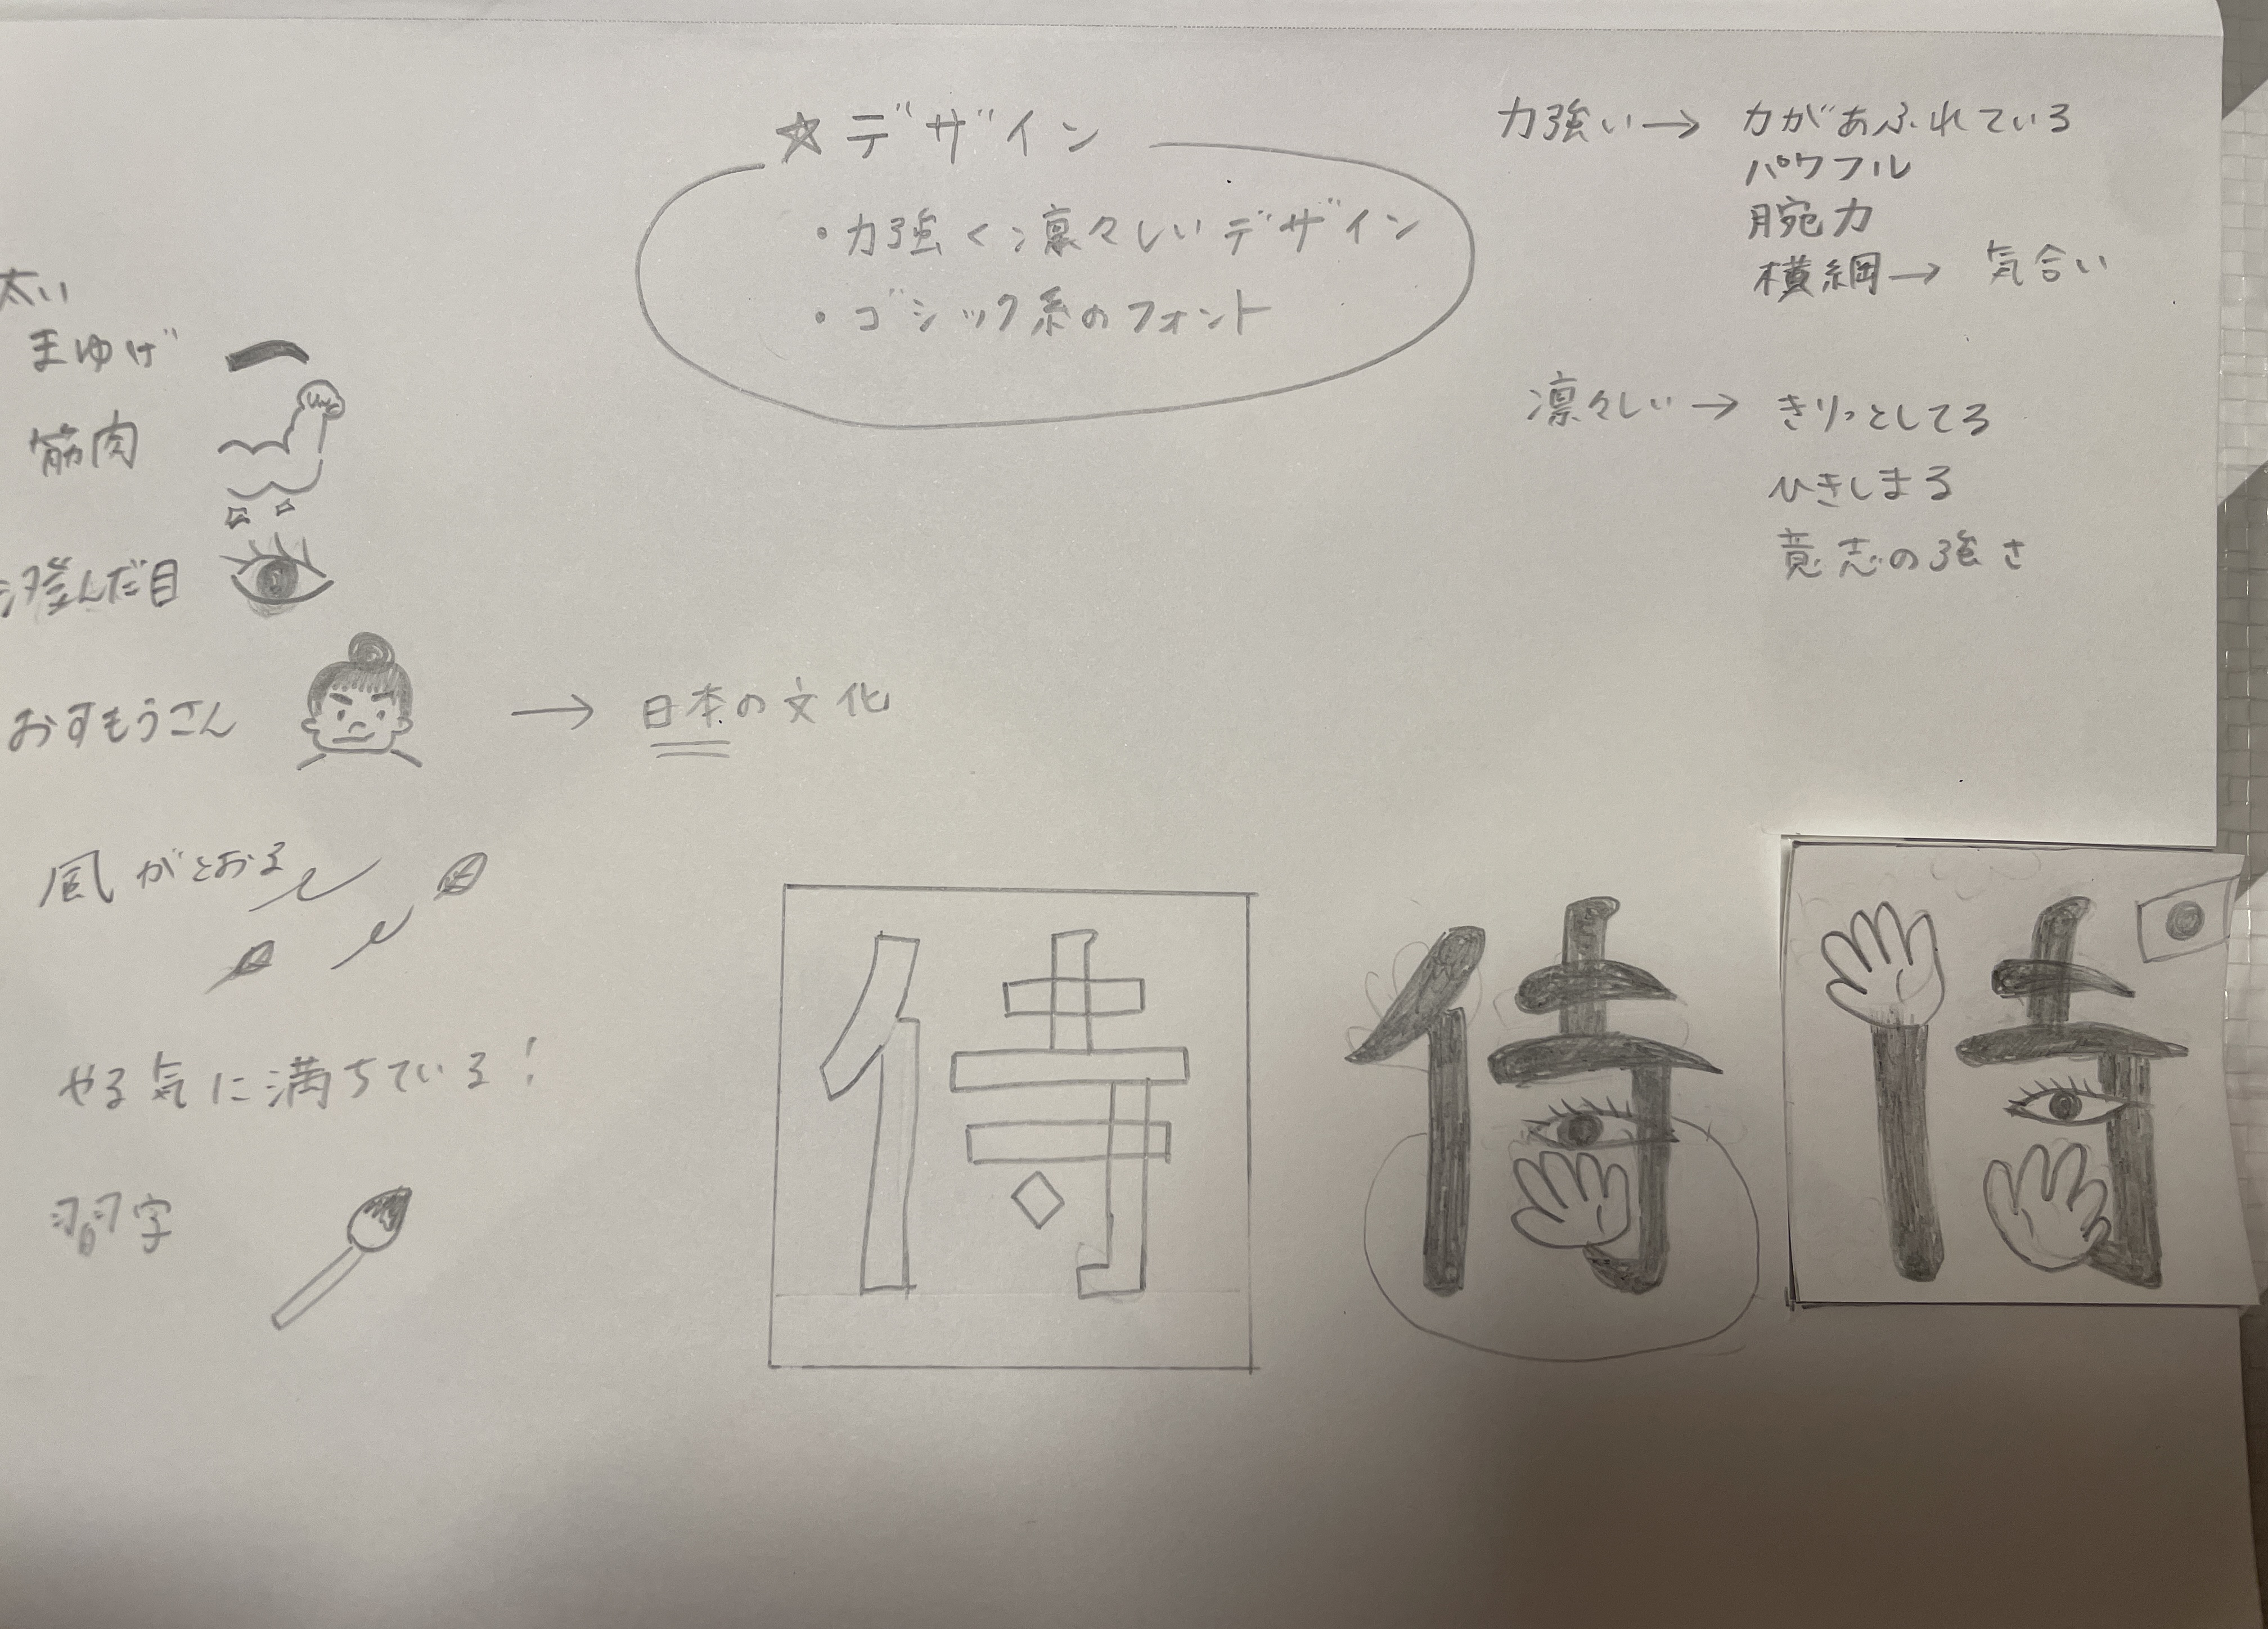 ☆デザイン
・力強く凛々しいデザイン
・ゴシック系のフォント
力強い→ 力があふれている
パワフル
腕力
横綱→ 気合い
凛々しい→ きりっとしてる
ひきしまる
意志の強さ
太い
まゆげ
筋肉
澄んだ目
おすもうさん → 日本の文化
風がとおる
やる気に満ちている!
習字
侍 侍 侍